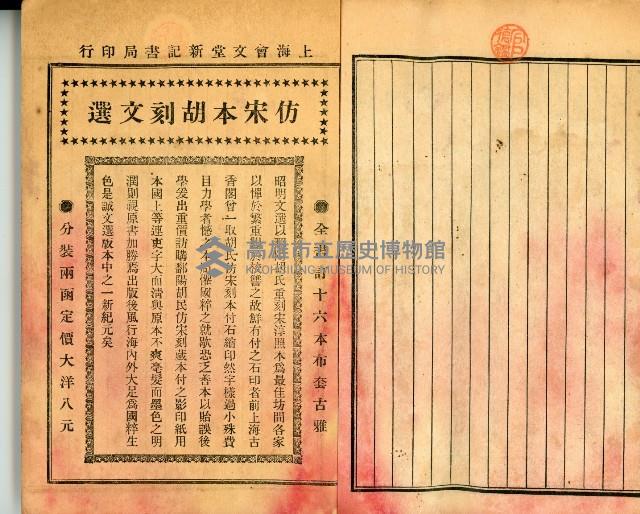 上海會文堂新記書局印行
仿宋本胡刻文選
全書計十六本布套古雅
昭明文選以胡氏重刻宋淳熙本爲最佳坊間各家
以憚於繁重讐之故鮮有付之石印者前上海古
香閣曾一取胡氏仿宋刻本付石縮印然字樣過小殊費
目力學者憾之本局懼國粹之就歇恐乏善本以貽誤後
學爰出重價訪購鄱陽胡氏仿宋刻藏本付之影印紙用
本國上等連史字大而清與原本不爽毫髮而墨色之明
潤則視原書加勝焉出版後風行海內外大足爲國粹生
色是誠文選版本中之一新紀元矣
分裝兩函定價大洋八元
高雄市立歷史博物館
KAOHSIUNG MUSEUM OF HISTORY